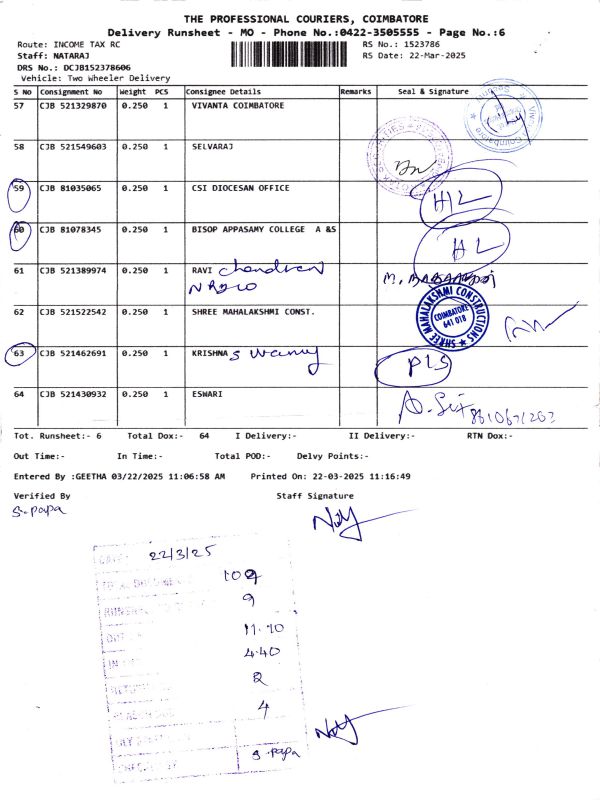 THE PROFESSIONAL COURIERS, COIMBATORE
Delivery Runsheet - MO - Phone No.:0422-3505555 - Page No.:6
Route: INCOME TAX RC RS No.: 1523786
Staff: NATARAJ RS Date: 22-Mar-2025
DRS No.: DCJB152378606
Vehicle: Two Wheeler Delivery
S No Consignment No Weight PCS Consignee Details Remarks Seal & Signature
57 CJB 521329870 0.250 1 VIVANTA COIMBATORE
58 CJB 521549603 0.250 1 SELVARAJ
59 CJB 81035065 0.250 1 CSI DIOCESAN OFFICE HL
60 CJB 81078345 0.250 1 BISOP APPASAMY COLLEGE A &S HL
61 CJB 521389974 0.250 1 RAVI chandran
62 CJB 521522542 0.250 1 SHREE MAHALAKSHMI CONST.
SHREE MAHALAKSHMI CONSTRUCTIONS
COIMBATORE
641 018
63 CJB 521462691 0.250 1 KRISHNA swamy PLS
64 CJB 521430932 0.250 1 ESWARI
Tot. Runsheet:- 6 Total Dox:- 64 I Delivery:- II Delivery:- RTN Dox:-
Out Time:- In Time:- Total POD:- Delvy Points:-
Entered By :GEETHA 03/22/2025 11:06:58 AM Printed On: 22-03-2025 11:16:49
Verified By Staff Signature
S. papa
22/3/25
9
4.40
2
4
S. papa